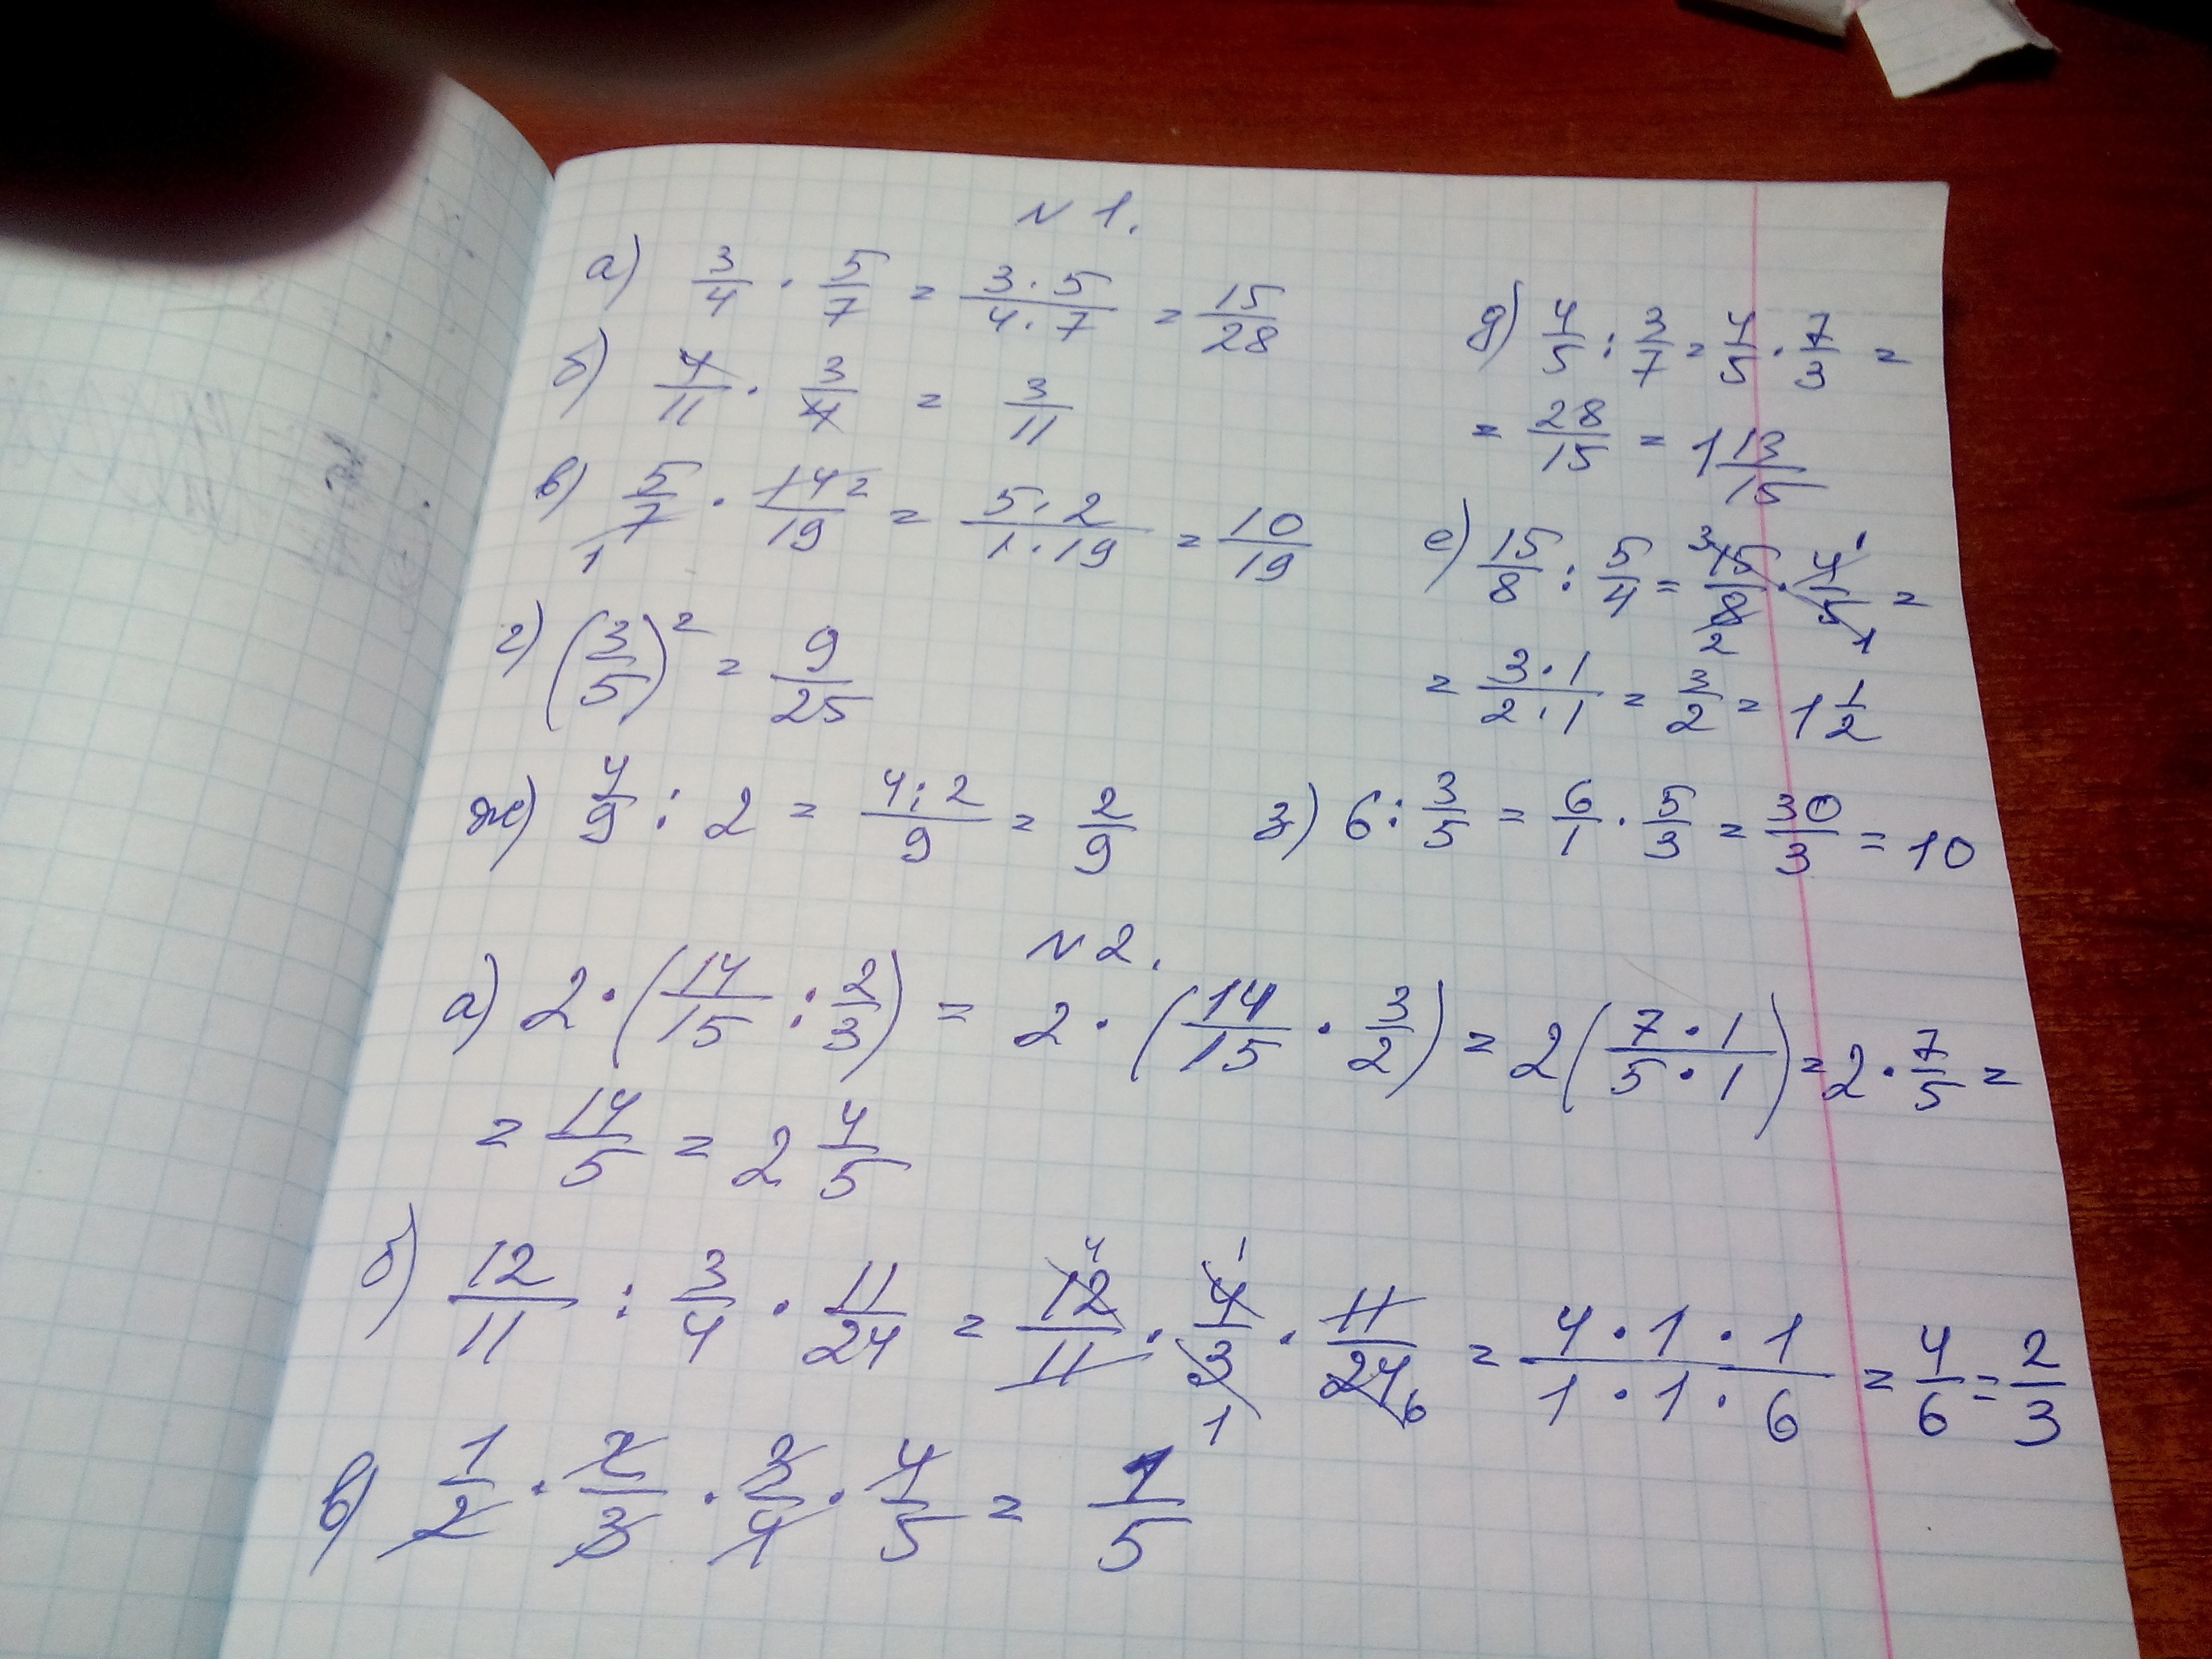 N 1.
а) 3/4 · 5/7 = 3·5/4·7 = 15/28
б) 4/11 · 3/4 = 3/11
в) 5/7 1 · 14 2/19 = 5·2/1·19 = 10/19
г) (3/5)² = 9/25
д) 4/5 : 3/7 = 4/5 · 7/3 =
= 28/15 = 1 13/15
е) 15/8 : 5/4 = 3 15/8 2 · 4 1/5 1 =
= 3·1/2·1 = 3/2 = 1 1/2
ж) 4/9 : 2 = 4:2/9 = 2/9
з) 6 : 3/5 = 6/1 · 5/3 = 30/3 = 10
N 2.
а) 2 · (14/15 : 2/3) = 2 · (14/15 · 3/2) = 2(7·1/5·1) = 2 · 7/5 =
= 14/5 = 2 4/5
б) 12/11 : 3/4 · 11/24 = 12 4/11 · 4 1/3 1 · 11/24 6 = 4·1·1/1·1·6 = 4/6 = 2/3
в) 1/2 · 2/3 · 3/4 · 4/5 = 1/5